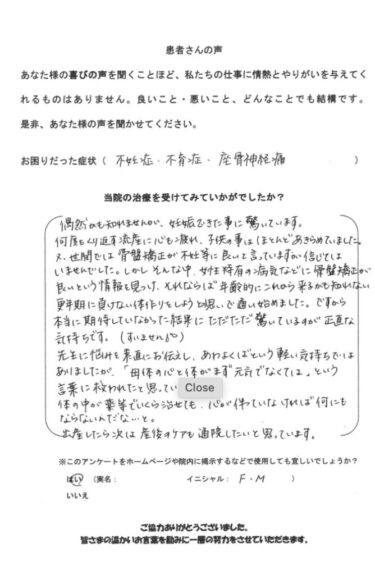 患者さんの声
あなた様の喜びの声を聞くことほど、私たちの仕事に情熱とやりがいを与えてく
れるものはありません。良いこと・悪いこと、どんなことでも結構です。
是非、あなた様の声を聞かせてください。
お困りだった症状（ 不妊症・不育症・座骨神経痛 ）
当院の治療を受けてみていかがでしたか？
偶然かも知れませんが、妊娠できた事に驚いています。
何度もくり返す流産に心も疲れ、子供の事はほとんどあきらめていました。
又、世間では骨盤矯正が不妊等に良いと言っていますが信じては
いませんでした。しかしそんな中、女性特有の病気などに骨盤矯正が
良いという情報を見つけ、それならば年齢的にこれから来るかも知れない
更年期に負けない体作りをしようと思い通い始めました。ですから
本当に期待していなかった結果にただただ驚いているのが正直な
気持ちです。（すいません）
先生に悩みを素直にお伝えし、あわよくばという軽い気持ちでは
ありましたが、「母体の心と体がまず元気でなくては。」という
言葉に救われたと思ってい
Close
体の中が薬等でいくら治せても、心が伴っていなければ何にも
ならないんだな〜と。
出産したら次は産後のケアも通院したいと思っています。
※このアンケートをホームページや院内に掲示するなどで使用しても宜しいでしょうか？
はい （実名： イニシャル： F・M ）
いいえ
ご協力ありがとうございました。
皆さまの温かいお言葉を励みに一層の努力をさせていただきます。